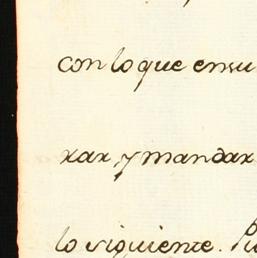 con lo que ensu
rar y mandar
lo siguiente.